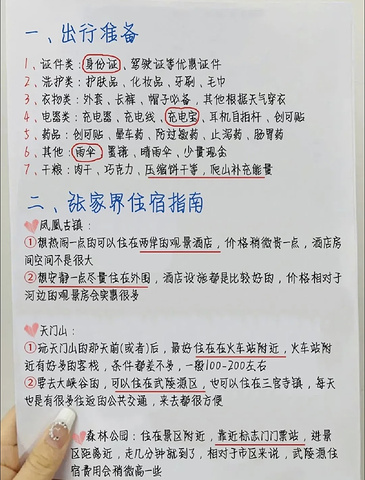 一、出行准备
1、证件类：身份证、驾驶证等优惠证件
2、洗护类：护肤品、化妆品、牙刷、毛巾
3、衣物类：外套、长裤、帽子必备，其他根据天气穿衣
4、电器类：充电器、充电线、充电宝、耳机自拍杆、创可贴
5、药品：创可贴、晕车药、防过敏药、止泻药、肠胃药
6、其他：雨伞、墨镜、晴雨伞、少量现金
7、干粮：肉干、巧克力、压缩饼干等，爬山补充能量
二、张家界住宿指南
凤凰古镇：
①想热闹一点的可以住在两岸的观景酒店，价格稍微贵一点，酒店房
间空间不是很大
②想安静一点尽量住在外围，酒店设施都是比较好的，价格相对于
河边的观景房会实惠很多
天门山：
①玩天门山的那天前(或者)后，最好住在在火车站附近，火车站附
近有好多的客栈，条件都差不多，一般100-200左右
②要去大峡谷的，可以住在武陵源区，也可以住在三官寺镇，每天
也是有很多往返的公共交通，来去都很方便
森林公园：住在景区附近，靠近标志门门票站，进景
区路离近，走几分钟就到了，相对于市区来说，武陵源住
宿费用会稍微高一些